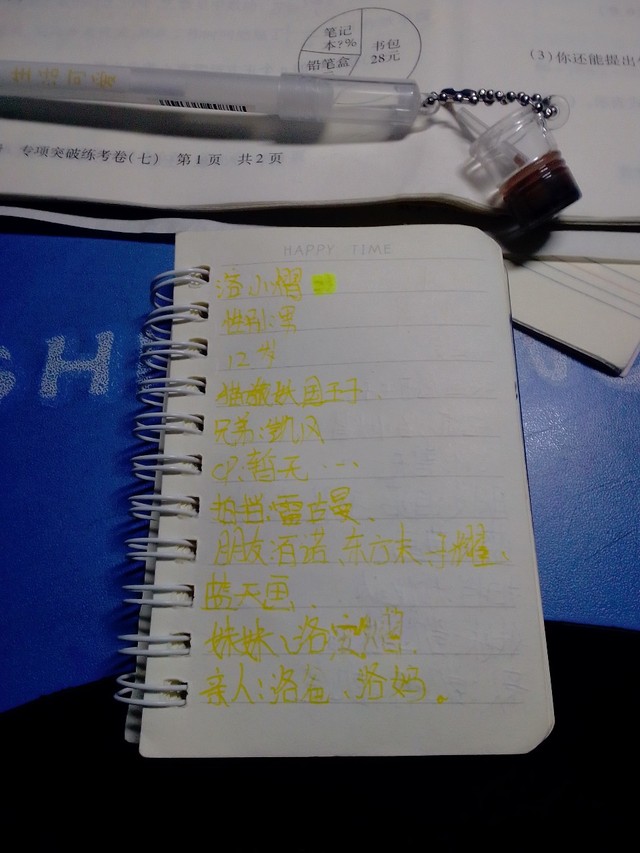 笔记
本?%
书包
28元
铅笔盒
(3)你还能提出
专项突破练考卷(七) 第1页 共2页
HAPPY TIME
洛小熠
性别:男
12岁
猫族妖国王子.
兄弟:凯风
CP:暂无...
拍档:雷古曼、
朋友:百诺、东方末、子耀、
蓝天画、
妹妹:洛安熠.
亲人:洛爸、洛妈。
SH